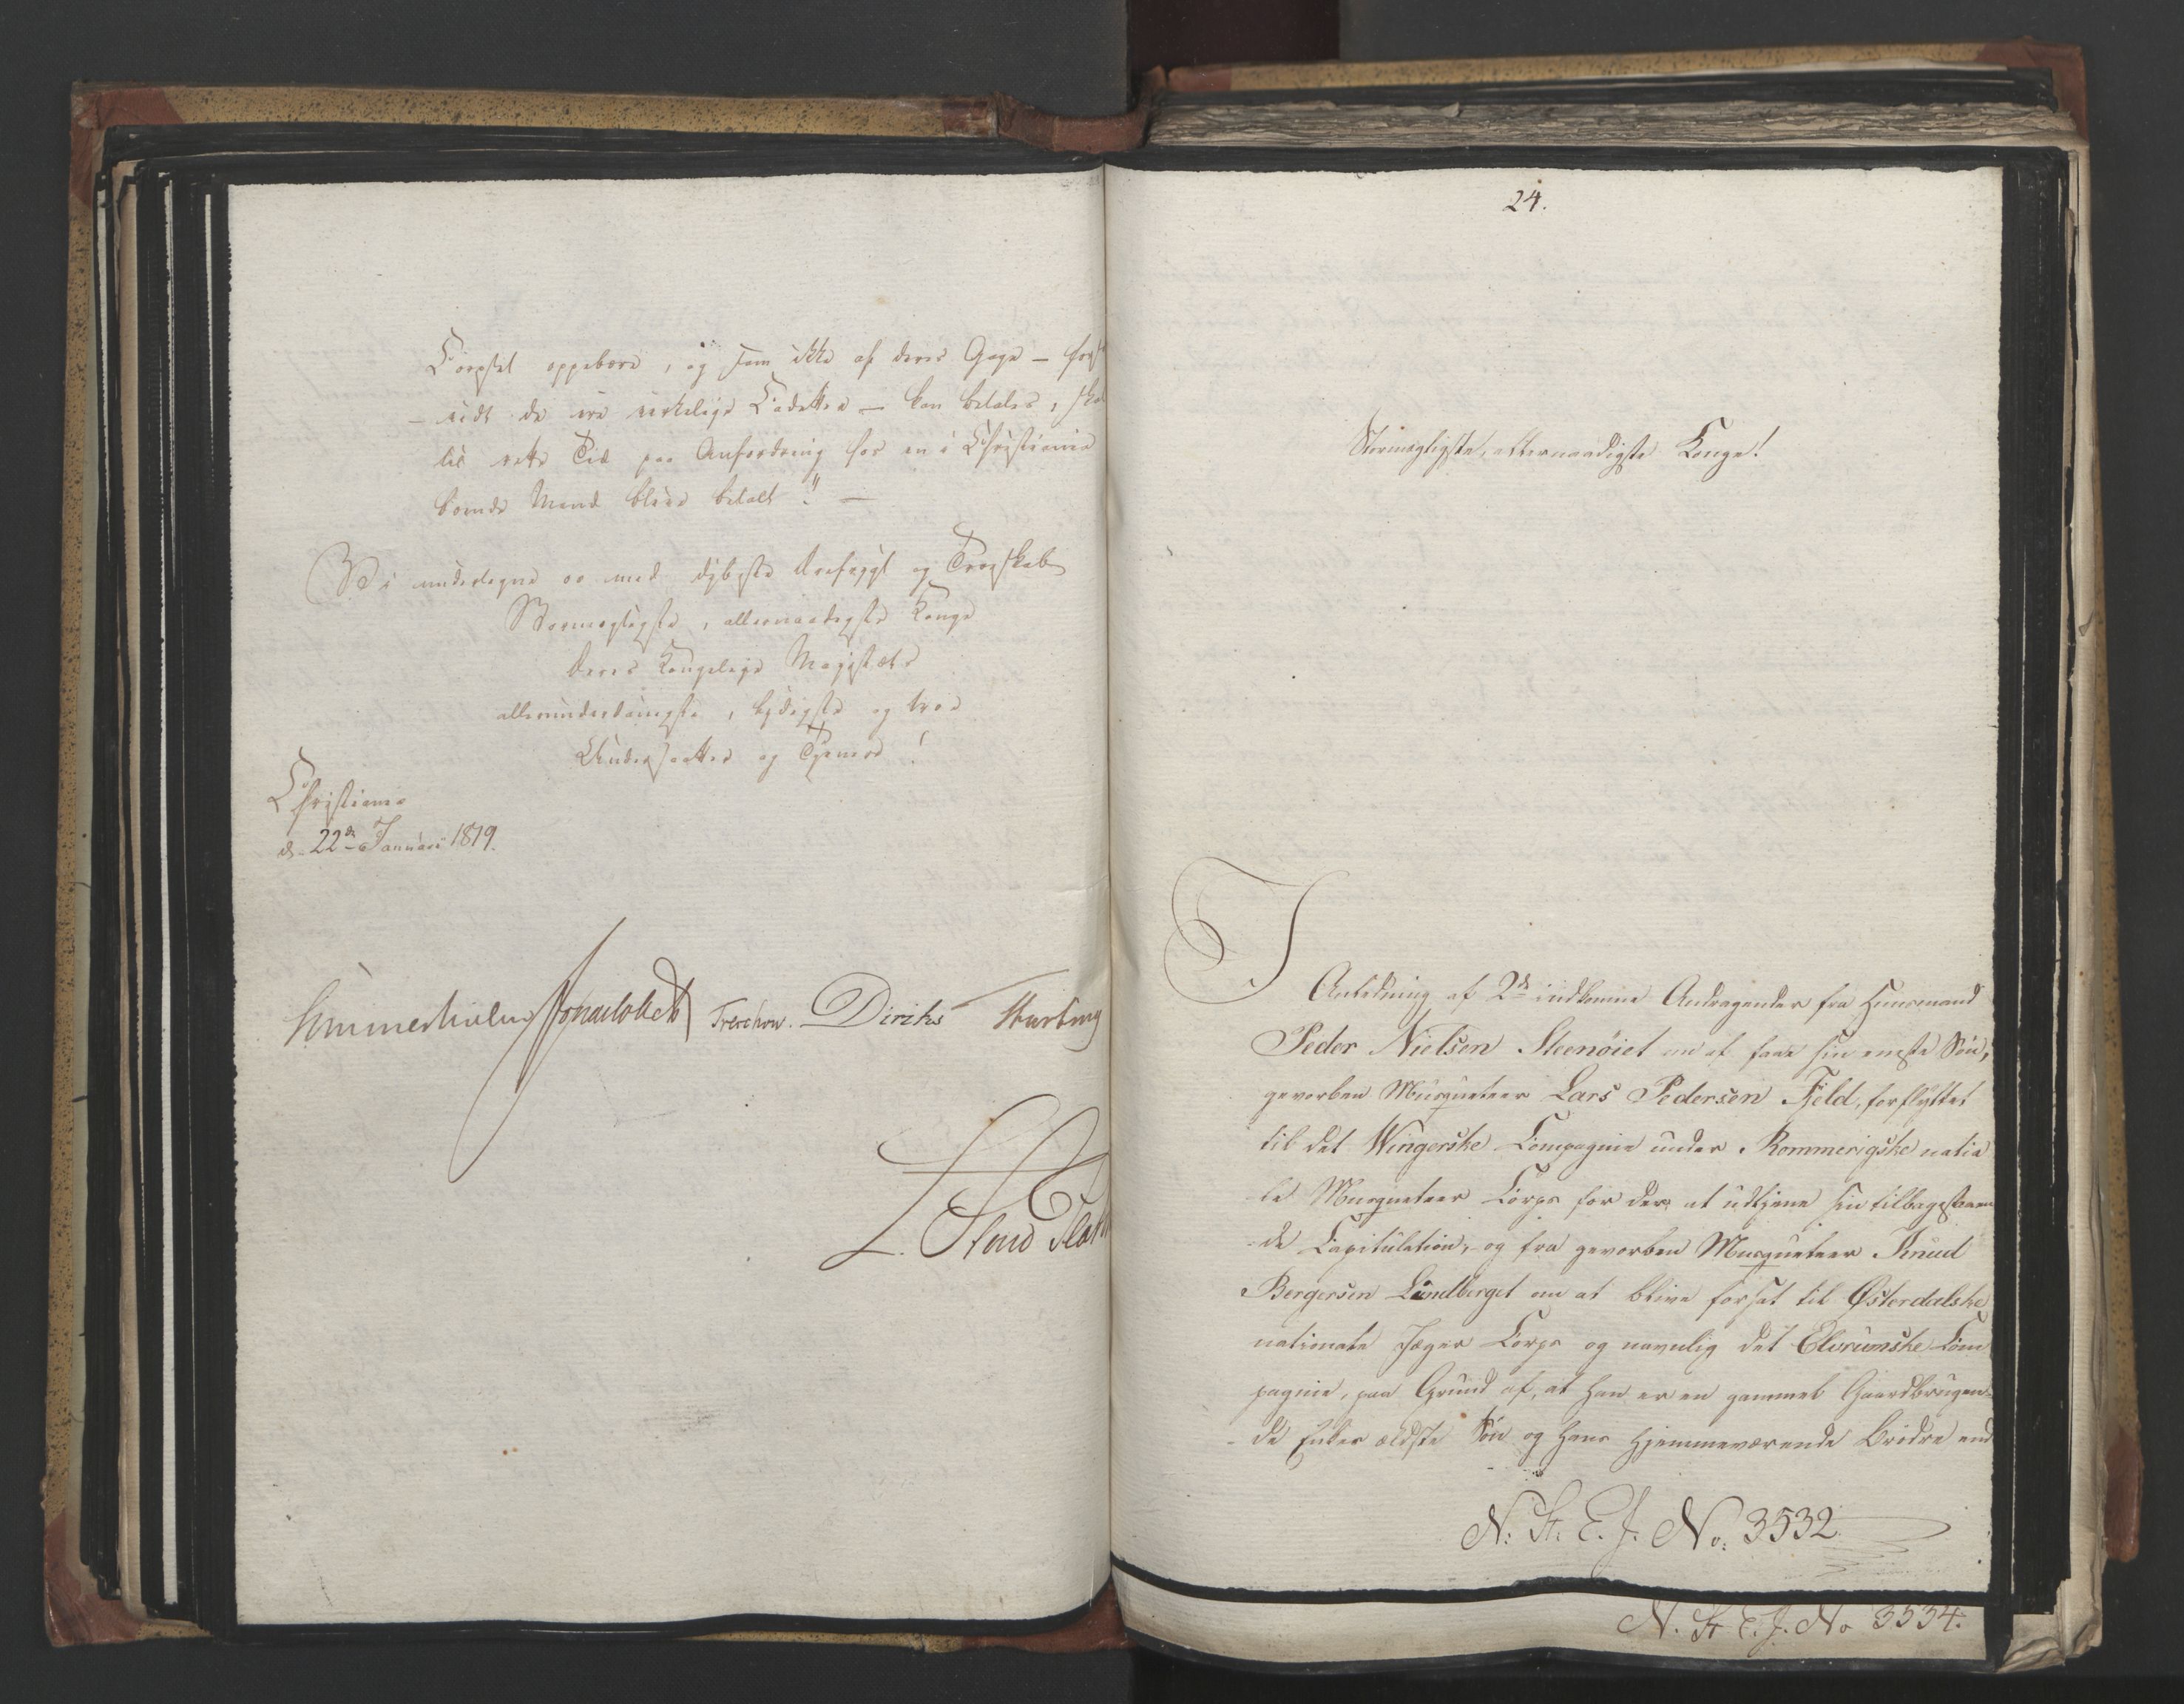 Corpset oppebære, og som ikke af deres Gage — for¬
- vidt de ere virkelige Cadetter — kan betales, skal
til rette Tid paa Anfordring hos en i Christiania
boende Mand blive betalt!" —
Vi undertegne os med dybeste Ærefrygt og Troeskab
Stormægtigste, allernaadigste Konge
Deres Kongelige Majestæts
allerunderdanigste, lydigste og troe
Undersaatter og Tjenere!
Christiania
d. 22de Januari 1819.
Sommerhielm Treschow. Diriks
L. Stoud Plat
24.
Stormægtigste, allernaadigste Konge!
I
Anledning af 2de indkomne Andragender fra Huusmand
Peder Nielsen Steenöiet om at faae sin eneste Søn,
gevorben Musqueteer Lars Pedersen Fjeld, forflyttet
til det Wingerske Compagnie under Rommerigske natio
le Musqueteer Corps for der at udtjene sin tilbagestaaen
- de Capitulation, og fra gevorben Musqueteer Knud
Bergersen Lundberget om at blive forsat til Østerdalske
nationale Jæger Corps og navnlig det Elverumske Com
pagnie, paa Grund af, at han er en gammel Gaardbrugen-
- de Enkes ældste Søn og hans hjemmeværende Brødre end
N. St. E. J. No. 3532.
N. St. E. J. No 3534.